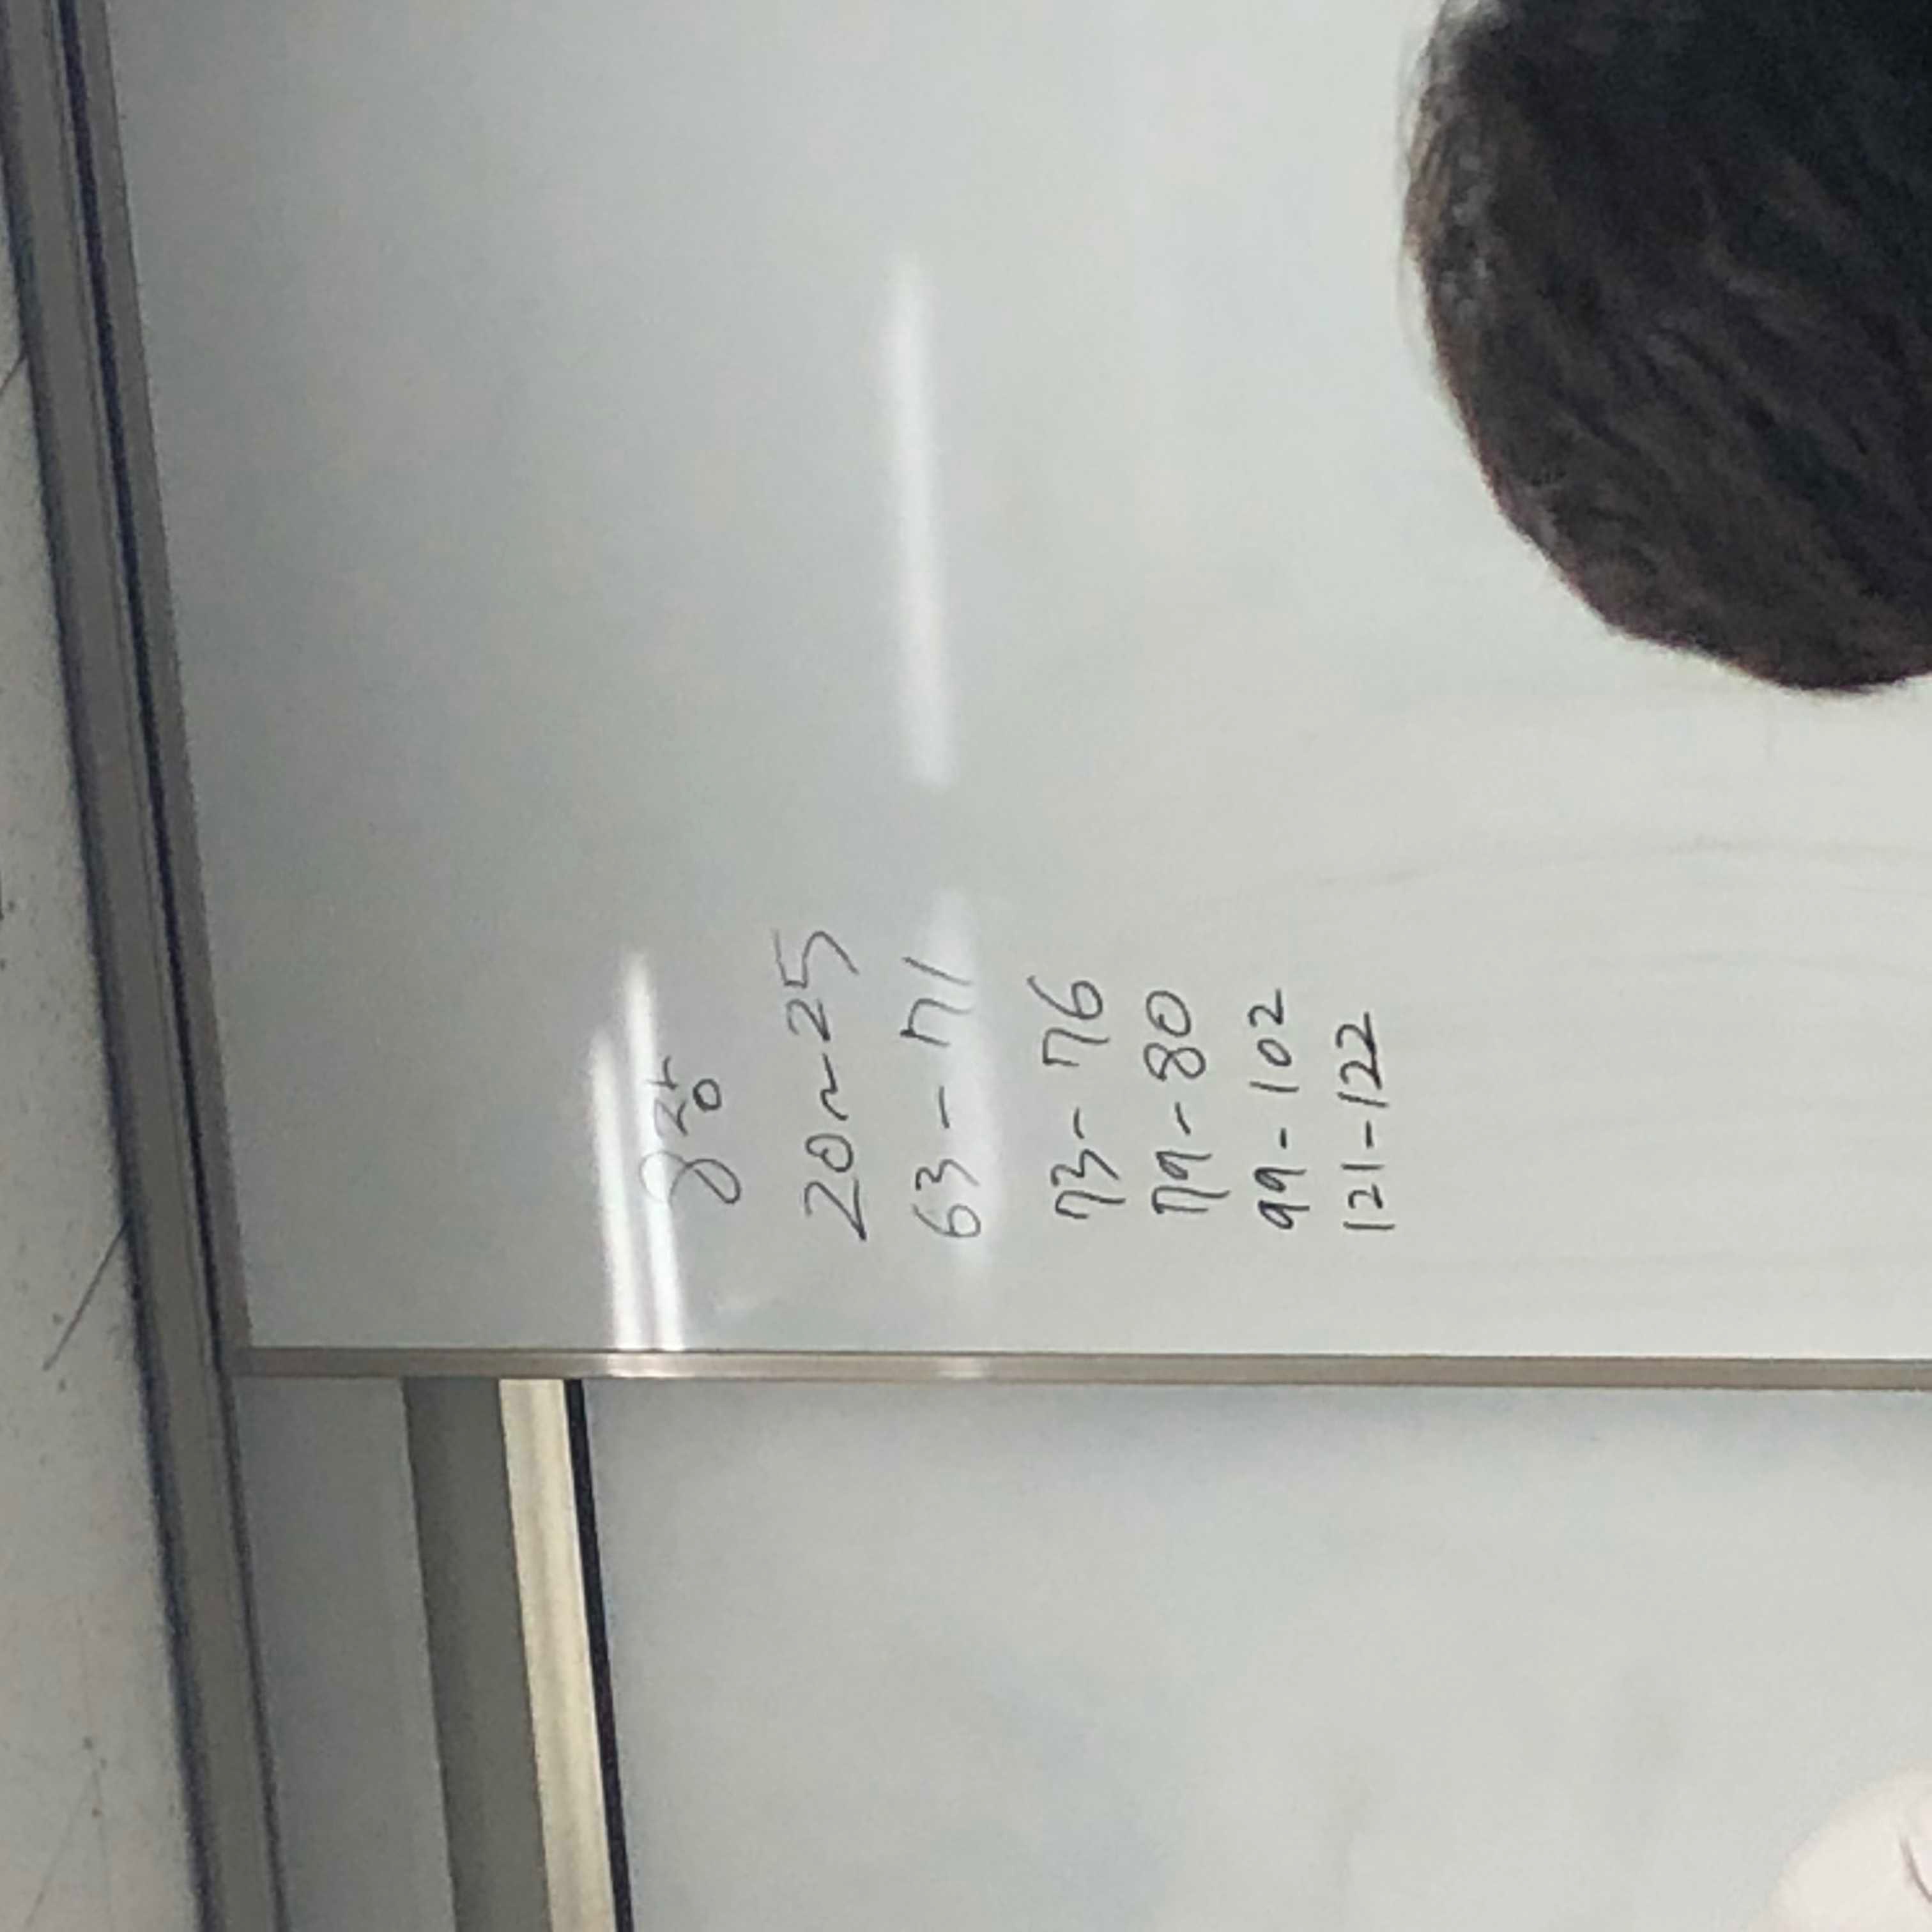 8장
20~25
63-71
73-76
79-80
99-102
121-122